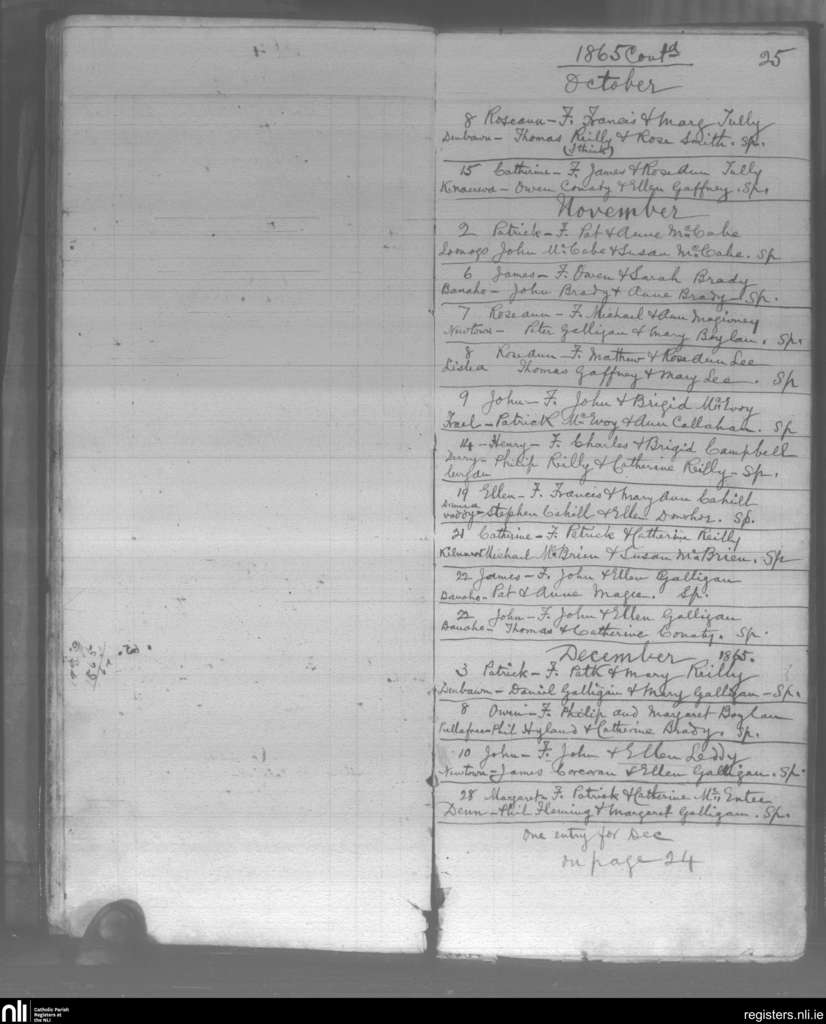 1865 Contd
25
October
8 Roseann - F. Francis & Marg Tully
Denbawn - Thomas Reilly & Rose Smith. Sp.
(I think)
15 Catherine - F. James & Rose Ann Tully
Owen Conaty & Ellen Gaffney. Sp.
November
2 Patrick - F. Pat & Anne McCabe
John McCabe & Susan McCabe. Sp
6 James - F. Owen & Sarah Brady
Banaho - John Brady & Anne Brady. Sp.
7 Roseann - F. Michael & Ann
Newtown - Peter Galligan & Mary Boylan. Sp.
8 Roseann - F. Mathew & Rose Ann Lee
Lislea Thomas Gaffney & Mary Lee. Sp
9 John - F. John & Brigid McEvoy
Patrick McEvoy & Ann Callahan. Sp
14 - Henry - F. Charles & Brigid Campbell
Derry- Philip Reilly & Catherine Reilly - Sp.
lurgan
19 Ellen - F. Francis & Mary Ann Cahill
Stephen Cahill & Ellen Donohoe. Sp.
21 Catherine - F. Patrick & Catherine Reilly
Michael McBrien & Susan McBrien. Sp
22 James - F. John & Ellen Galligan
Banaho - Pat & Anne Magee. Sp.
22 John - F. John & Ellen Galligan
Banaho - Thomas & Catherine Conaty. Sp.
December 1865.
3 Patrick - F. Patk & Mary Reilly
Denbawn - Daniel Galligan & Mary Galligan - Sp.
8 Owen - F. Philip and Margaret Boylan
Phil Hyland & Catherine Brady. Sp.
10 John - F. John & Ellen Leddy
Newtown - James Corcoran & Ellen Galligan. Sp.
28 Margaret - F. Patrick & Catherine McEntee
Denn - Phil Fleming & Margaret Galligan. Sp.
One entry for Dec
on page 24
nli
Catholic Parish
Registers at
the NLI
registers.nli.ie